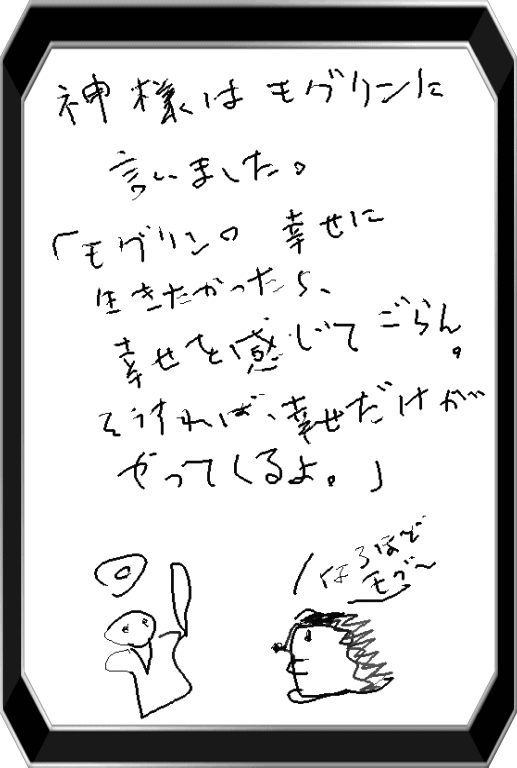 神様はモグリンに
言いました。
「モグリン。幸せに
生きたかったら、
幸せを感じてごらん。
そうすれば、幸せだけが
やってくるよ。」
なるほど
モグ〜